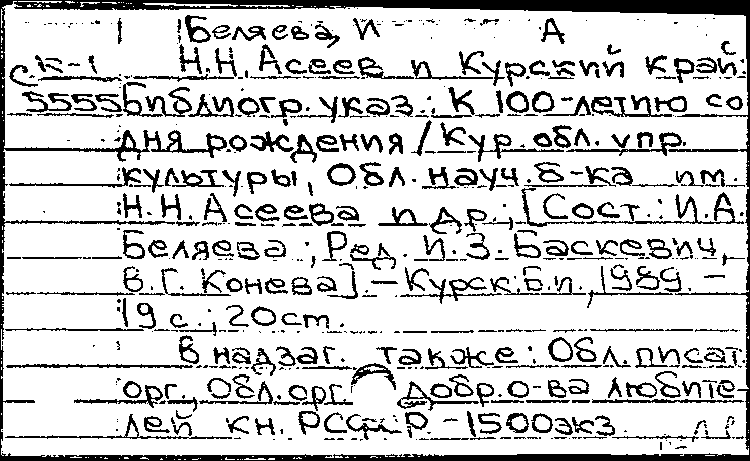 Беляева, И А
сК-1 Н.Н. Асеев и Курский край:
5555 Библиогр. указ.: К 100-летию со
дня рождения / Кур. обл. упр.
культуры, Обл. науч. б-ка им.
Н.Н. Асеева и др.; [Сост.: И.А.
Беляева; Ред. И.З. Баскевич,
В.Г. Конева]. - Курск: Б.и., 1989. -
19 с.; 20 см.
В надзаг. также: Обл. писат.
орг., Обл. орг. добр. о-ва любите-
лей кн. РСФСР - 1500 экз.